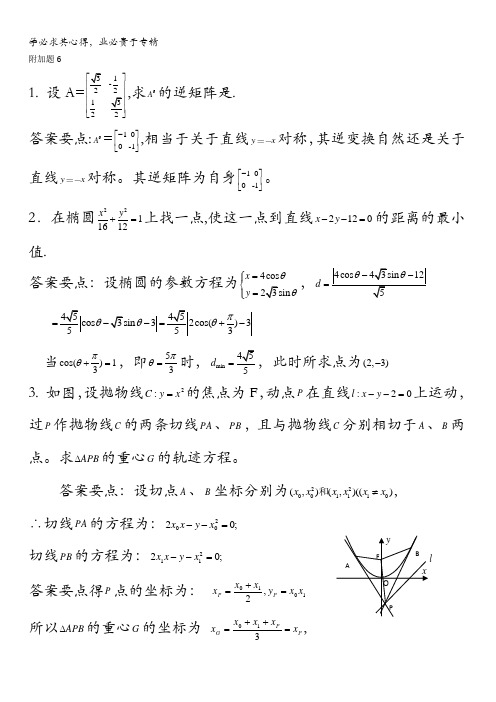 学必求其心得，业必贵于专精
附加题6
1. 设A=[√3/2 -1/2; 1/2 √3/2],求A⁶的逆矩阵是.
答案要点:A⁶=[-1 0; 0 -1],相当于关于直线y=-x对称,其逆变换自然还是关于
直线y=-x对称。其逆矩阵为自身[-1 0; 0 -1]。
2．在椭圆x²/16+y²/12=1上找一点,使这一点到直线x-2y-12=0的距离的最小
值.
答案要点：设椭圆的参数方程为{x=4cosθ y=2√3sinθ，d=|4cosθ-4√3sinθ-12|/√5
=4√5/5|cosθ-√3sinθ-3|=4√5/5|2cos(θ+π/3)-3|
当cos(θ+π/3)=1，即θ=5π/3时，d_min=4√5/5，此时所求点为(2,-3)
3. 如图,设抛物线C:y=x²的焦点为F,动点P在直线l:x-y-2=0上运动,
过P作抛物线C的两条切线PA、PB，且与抛物线C分别相切于A、B两
点。求△APB的重心G的轨迹方程。
答案要点：设切点A、B坐标分别为(x₀,x₀²)和(x₁,x₁²)((x₁≠x₀),
∴切线PA的方程为：2x₀x-y-x₀²=0;
切线PB的方程为：2x₁x-y-x₁²=0;
答案要点得P点的坐标为： x_P=(x₀+x₁)/2,y_P=x₀x₁
所以△APB的重心G的坐标为 x_G=(x₀+x₁+x_P)/3=x_P,
y
F
B
A
l
x
O
P